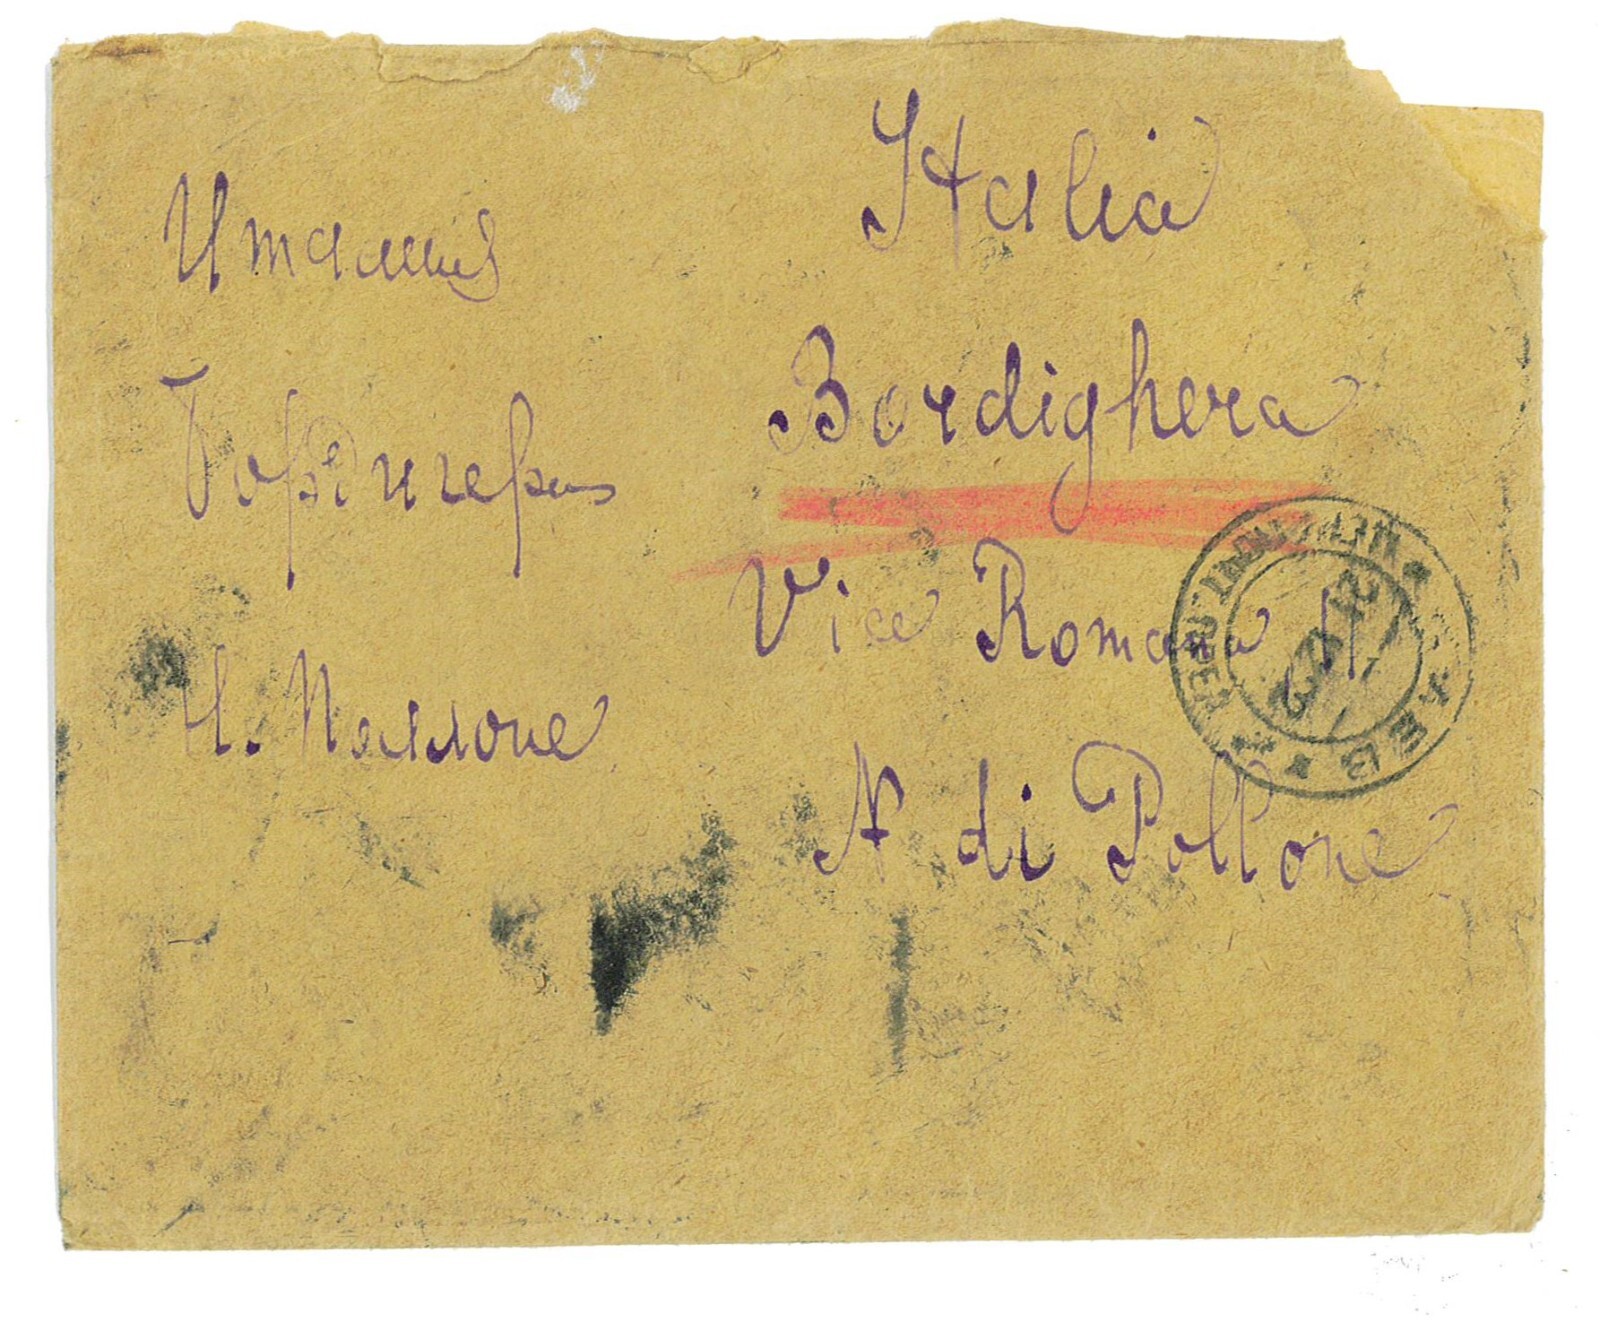 Италия
Бордигера
Н. Поллоне
Italia
Bordighera
Vice Romana
N di Pollone